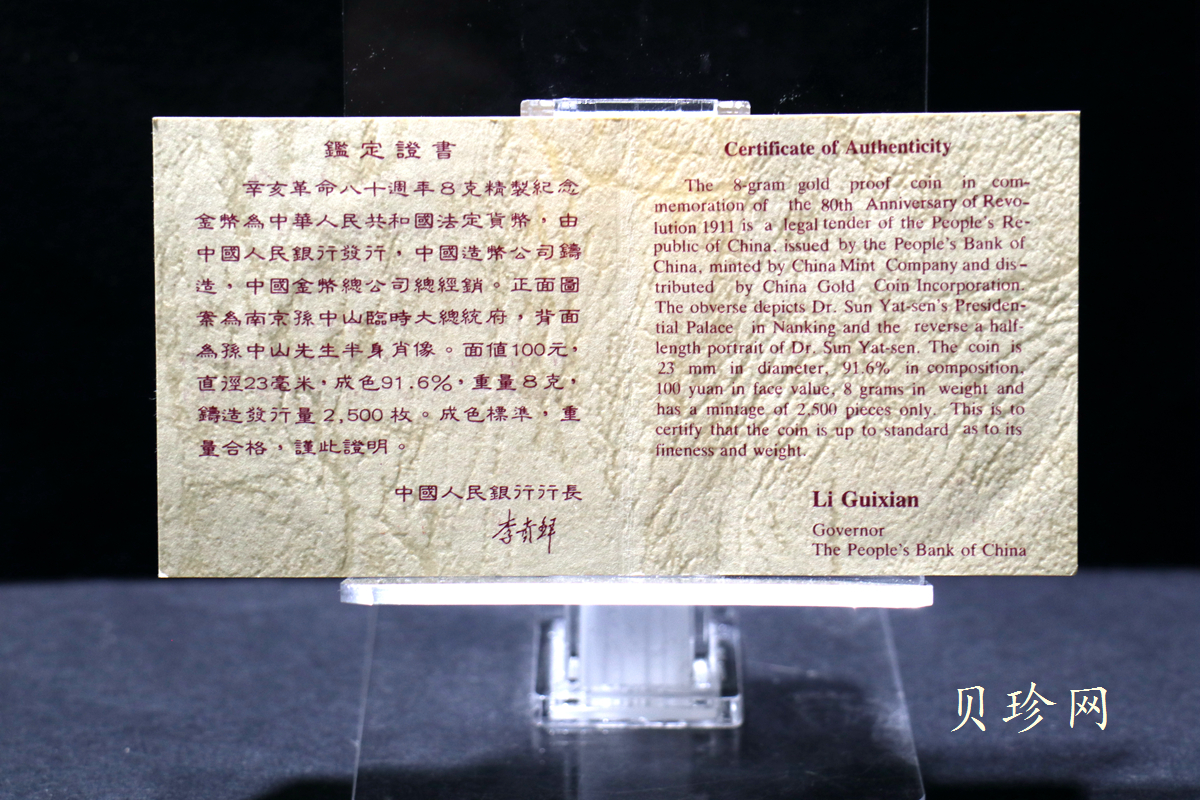 鑑定證書
辛亥革命八十週年8克精製紀念
金幣為中華人民共和國法定貨幣，由
中國人民銀行發行，中國造幣公司鑄
造，中國金幣總公司總經銷。正面圖
案為南京孫中山臨時大總統府，背面
為孫中山先生半身肖像。面值100元，
直徑23毫米，成色91.6%，重量8克，
鑄造發行量2,500枚。成色標準，重
量合格，謹此證明。
中國人民銀行行長
李贵鲜
Certificate of Authenticity
The 8-gram gold proof coin in com-
memoration of the 80th Anniversary of Revo-
lution 1911 is a legal tender of the People's Re-
public of China, issued by the People's Bank of
China, minted by China Mint Company and dis-
tributed by China Gold Coin Incorporation.
The obverse depicts Dr. Sun Yat-sen's Presiden-
tial Palace in Nanking and the reverse a half-
length portrait of Dr. Sun Yat-sen. The coin is
23 mm in diameter, 91.6% in composition,
100 yuan in face value, 8 grams in weight and
has a mintage of 2,500 pieces only. This is to
certify that the coin is up to standard as to its
fineness and weight.
Li Guixian
Governor
The People's Bank of China
贝珍网